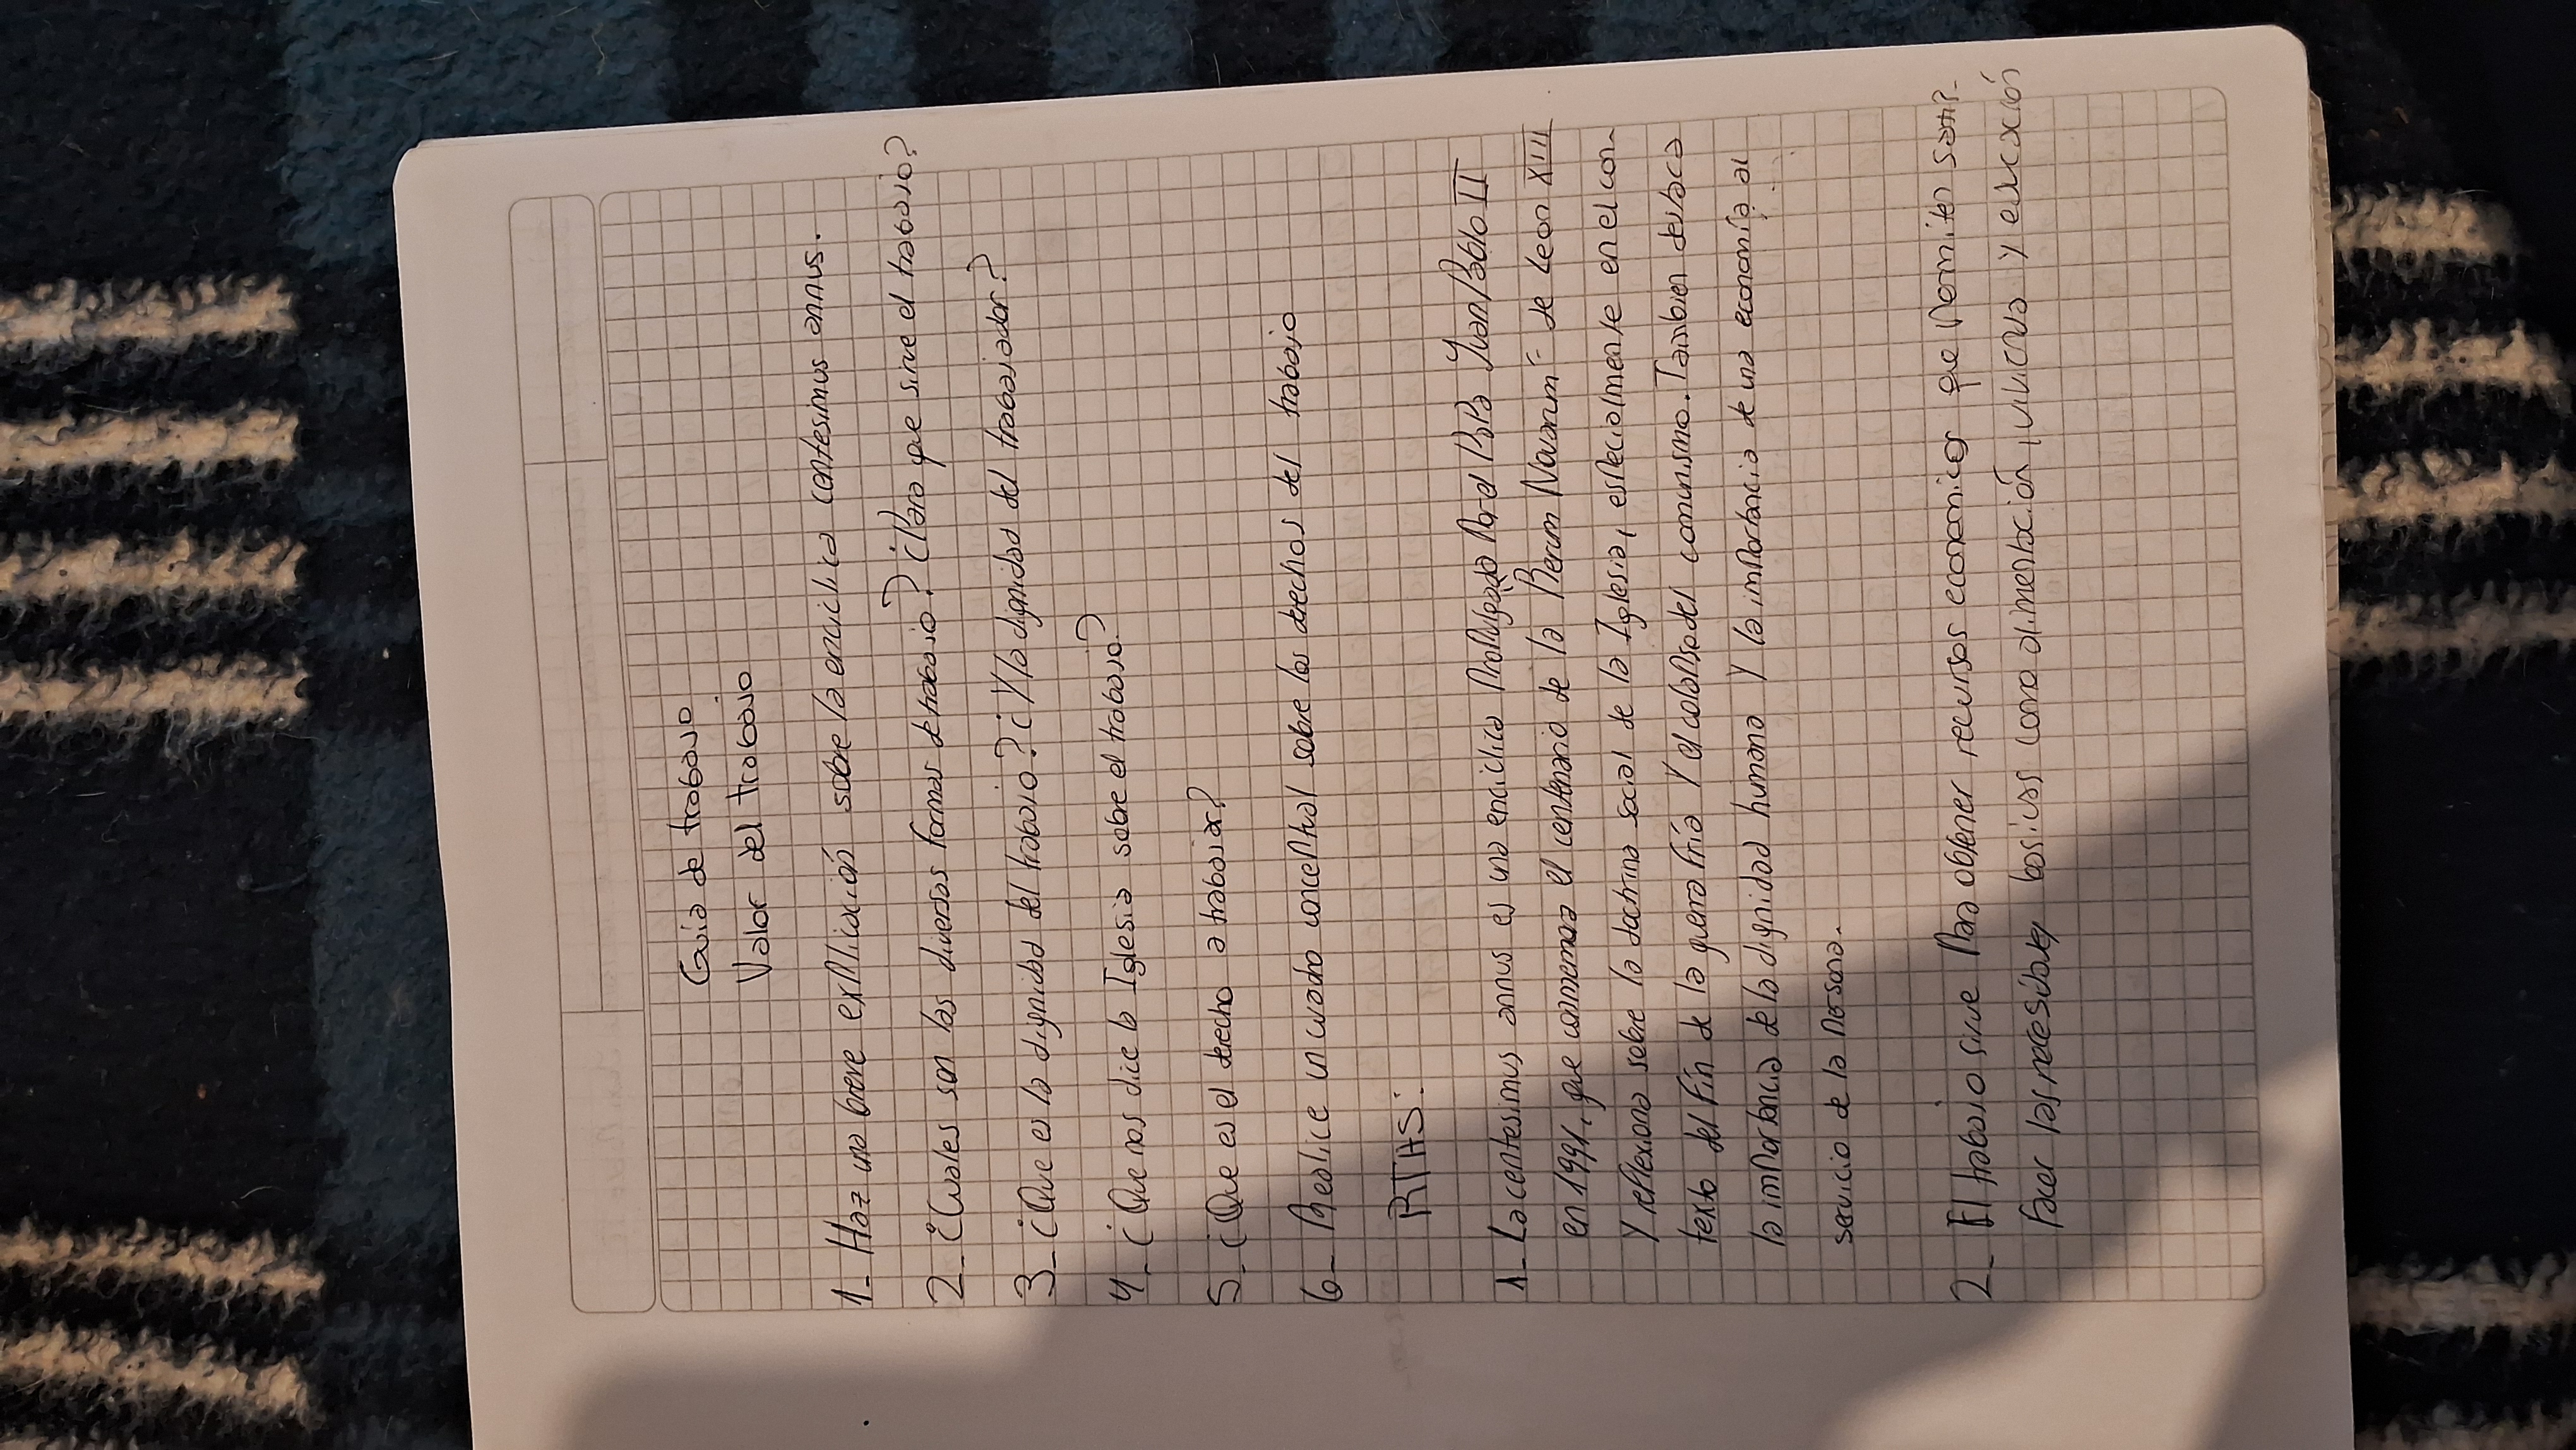 Guia de trabajo
Valor del trabajo
1- Haz una breve explicación sobre la enciclica centesimus annus.
2- ¿Cuales son las diversas formas de trabajo? ¿Para que sirve el trabajo?
3- ¿Que es la dignidad del trabajo? ¿Y la dignidad del trabajador?
4- ¿Que nos dice la Iglesia sobre el trabajo?
5- ¿Que es el derecho a trabajar?
6- Realice un cuadro conceptual sobre los derechos del trabajo
RTAS:
1- La centesimus annus es una enciclica Promulgada Por el Papa Juan Pablo II
en 1991, que conmemora el centenario de la Rerum Novarum de Leon XIII
Y reflexiona sobre la doctrina social de la Iglesia, especialmente en el con-
texto del fin de la guerra fria Y el colapso del comunismo. Tambien destaca
la importancia de la dignidad humana Y la importancia de una economía al
servicio de la Persona.
2- El trabajo sirve Para obtener recursos economicos que Permiten satis-
facer las necesidades basicas como alimentación, vivienda y educación